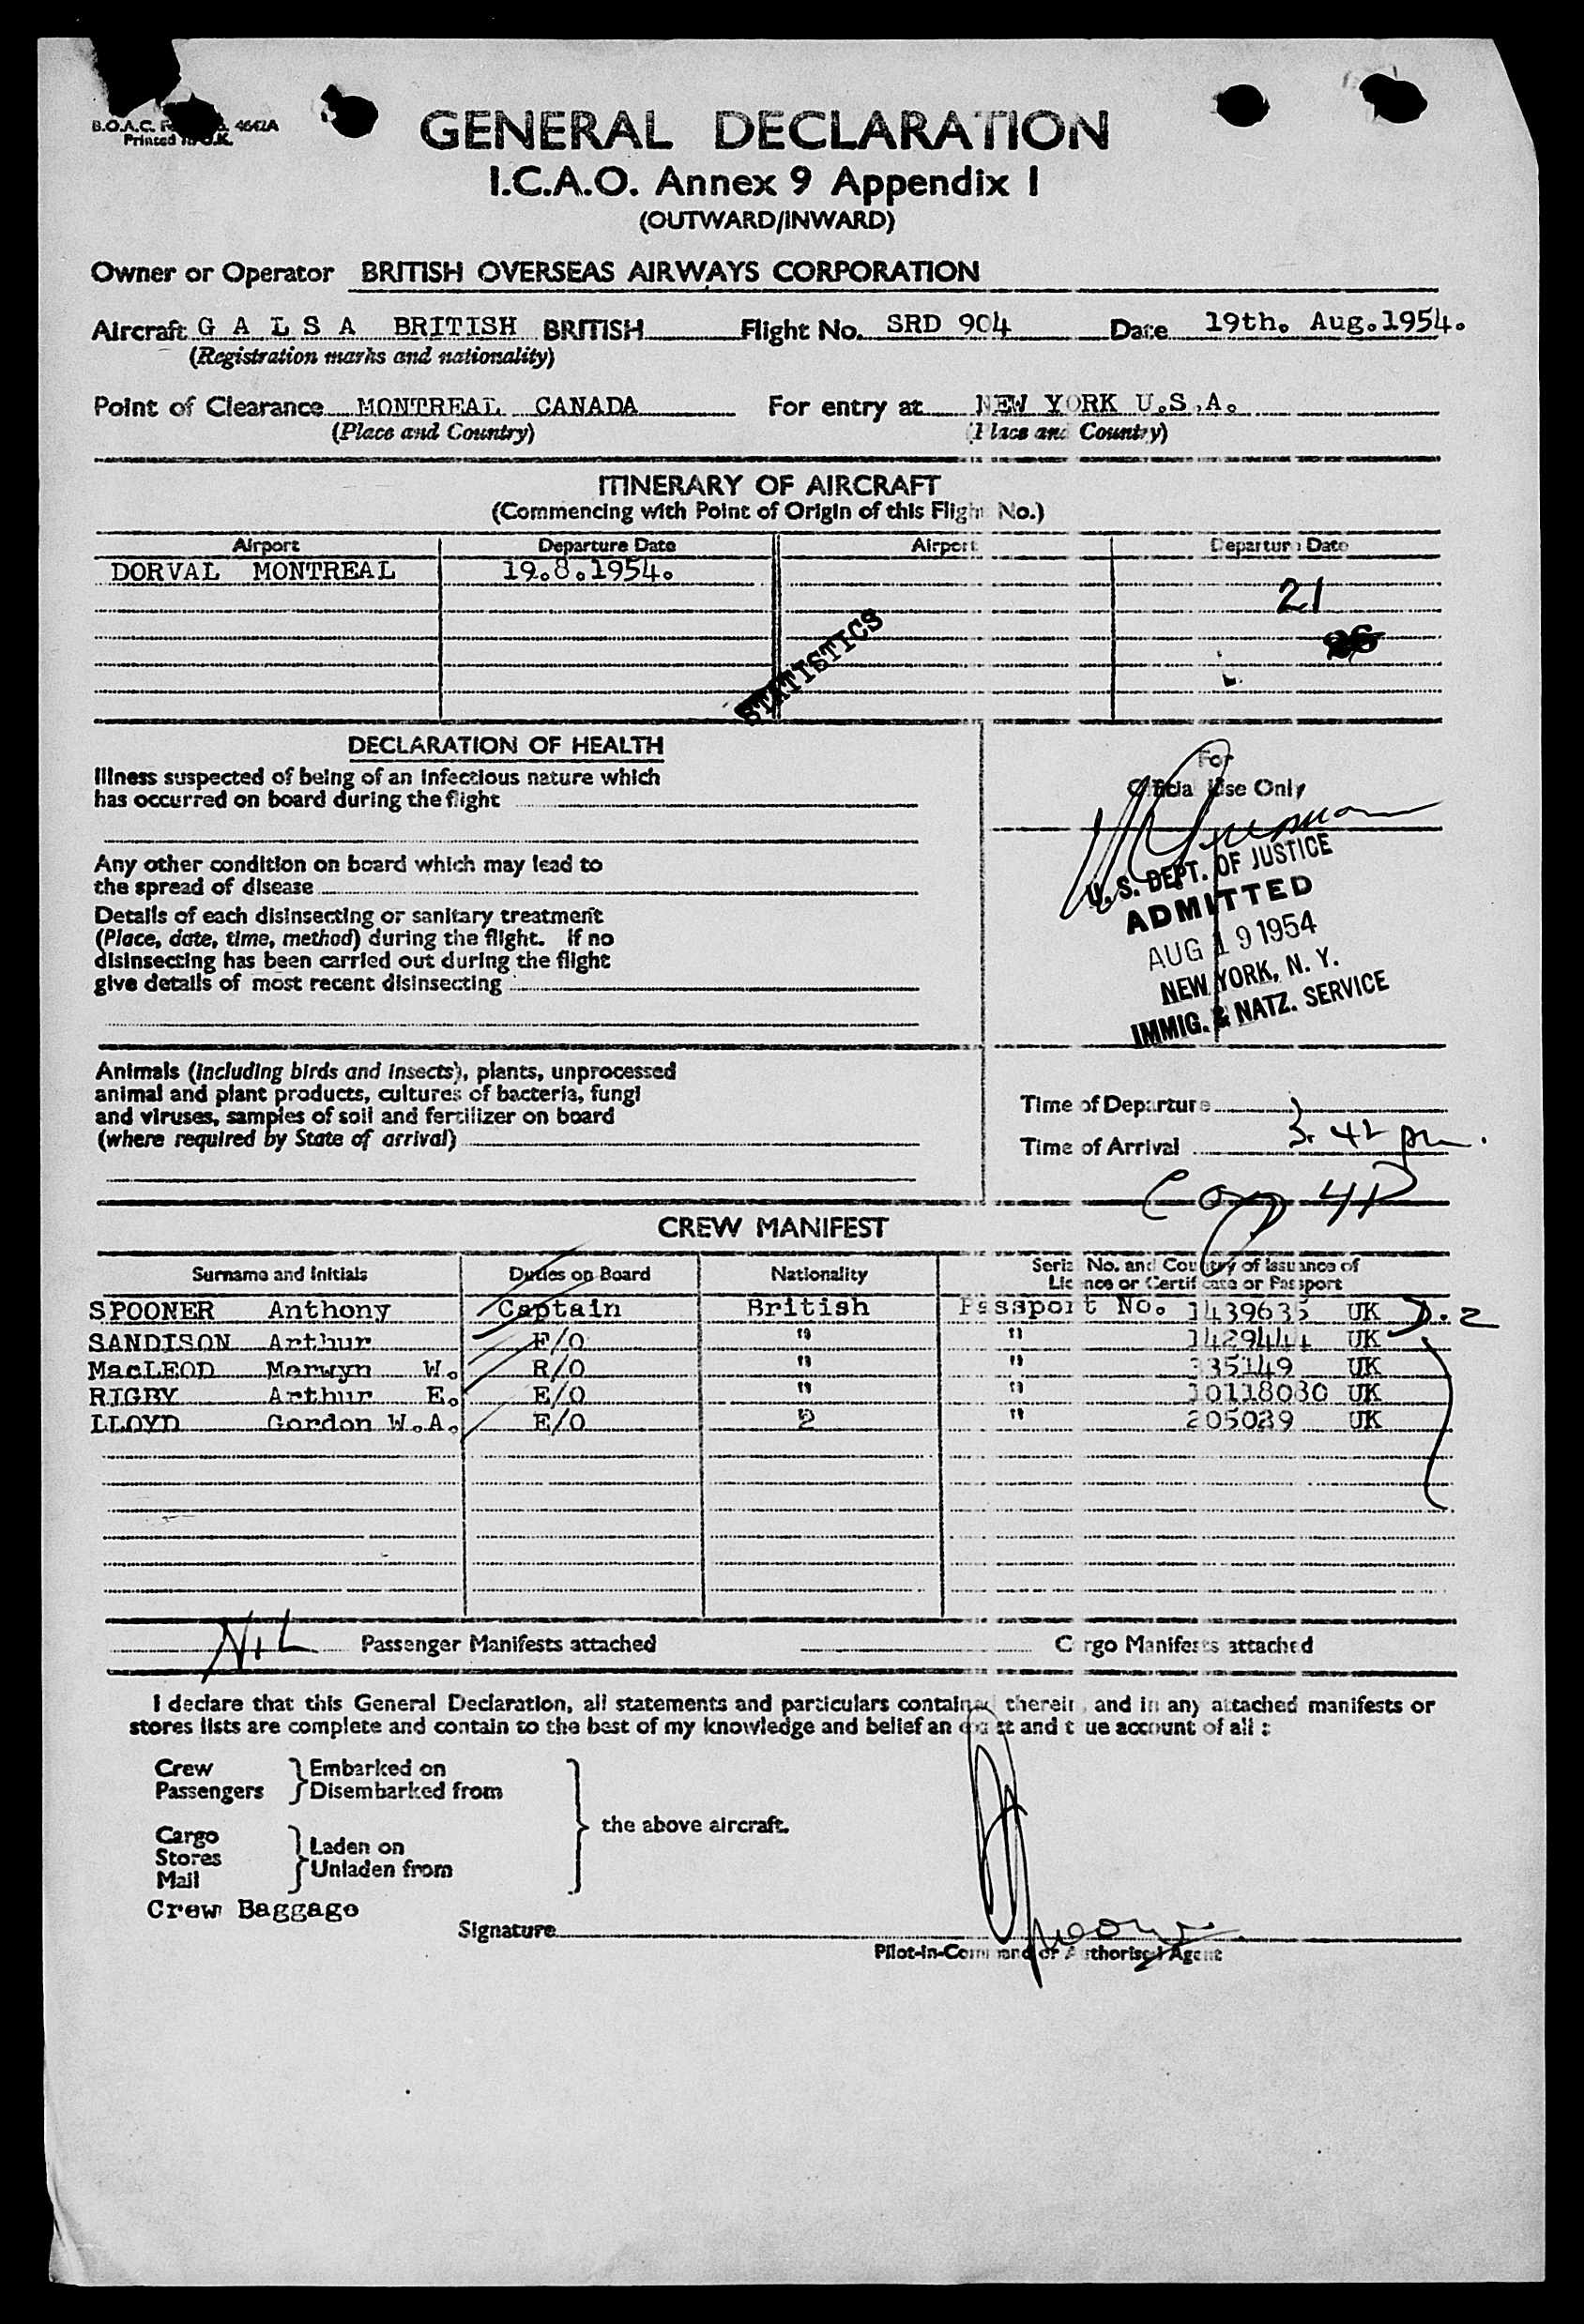 B.O.A.C. 4642A
Printed in U.K.
GENERAL DECLARATION
I.C.A.O. Annex 9 Appendix I
(OUTWARD/INWARD)
Owner or Operator BRITISH OVERSEAS AIRWAYS CORPORATION
Aircraft G A L S A BRITISH BRITISH Flight No. SRD 904 Date 19th. Aug.1954.
(Registration marks and nationality)
Point of Clearance MONTREAL CANADA For entry at NEW YORK U.S.A.
(Place and Country) (Place and Country)
ITINERARY OF AIRCRAFT
(Commencing with Point of Origin of this Flight No.)
Airport Departure Date Airport Departure Date
DORVAL MONTREAL 19.8.1954.
21
STATISTICS
DECLARATION OF HEALTH
Illness suspected of being of an infectious nature which
has occurred on board during the flight
Any other condition on board which may lead to
the spread of disease
Details of each disinsecting or sanitary treatment
(Place, date, time, method) during the flight. If no
disinsecting has been carried out during the flight
give details of most recent disinsecting
For
Official Use Only
U. S. DEPT. OF JUSTICE
ADMITTED
AUG 19 1954
NEW YORK, N. Y.
IMMIG. & NATZ. SERVICE
Animals (including birds and insects), plants, unprocessed
animal and plant products, cultures of bacteria, fungi
and viruses, samples of soil and fertilizer on board
(where required by State of arrival)
Time of Departure
Time of Arrival 3.42 pm.
CREW MANIFEST
Surname and Initials Duties on Board Nationality Serial No. and Country of Issuance of
Licence or Certificate or Passport
SPOONER Anthony Captain British Passport No. 1439635 UK D.2
SANDISON Arthur F/O " " 1429444 UK
MacLEOD Merwyn W. R/O " " 335149 UK
RIGBY Arthur E. E/O " " 10118080 UK
LLOYD Gordon W.A. E/O 2 " 205039 UK
NIL Passenger Manifests attached Cargo Manifests attached
I declare that this General Declaration, all statements and particulars contained therein, and in any attached manifests or
stores lists are complete and contain to the best of my knowledge and belief an exact and true account of all :
Crew Embarked on
Passengers Disembarked from
the above aircraft.
Cargo
Stores Laden on
Mail Unladen from
Crew Baggage
Signature Spooner
Pilot-in-Command or Authorised Agent